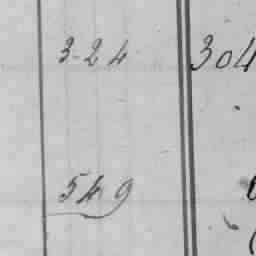 3-24 304
549